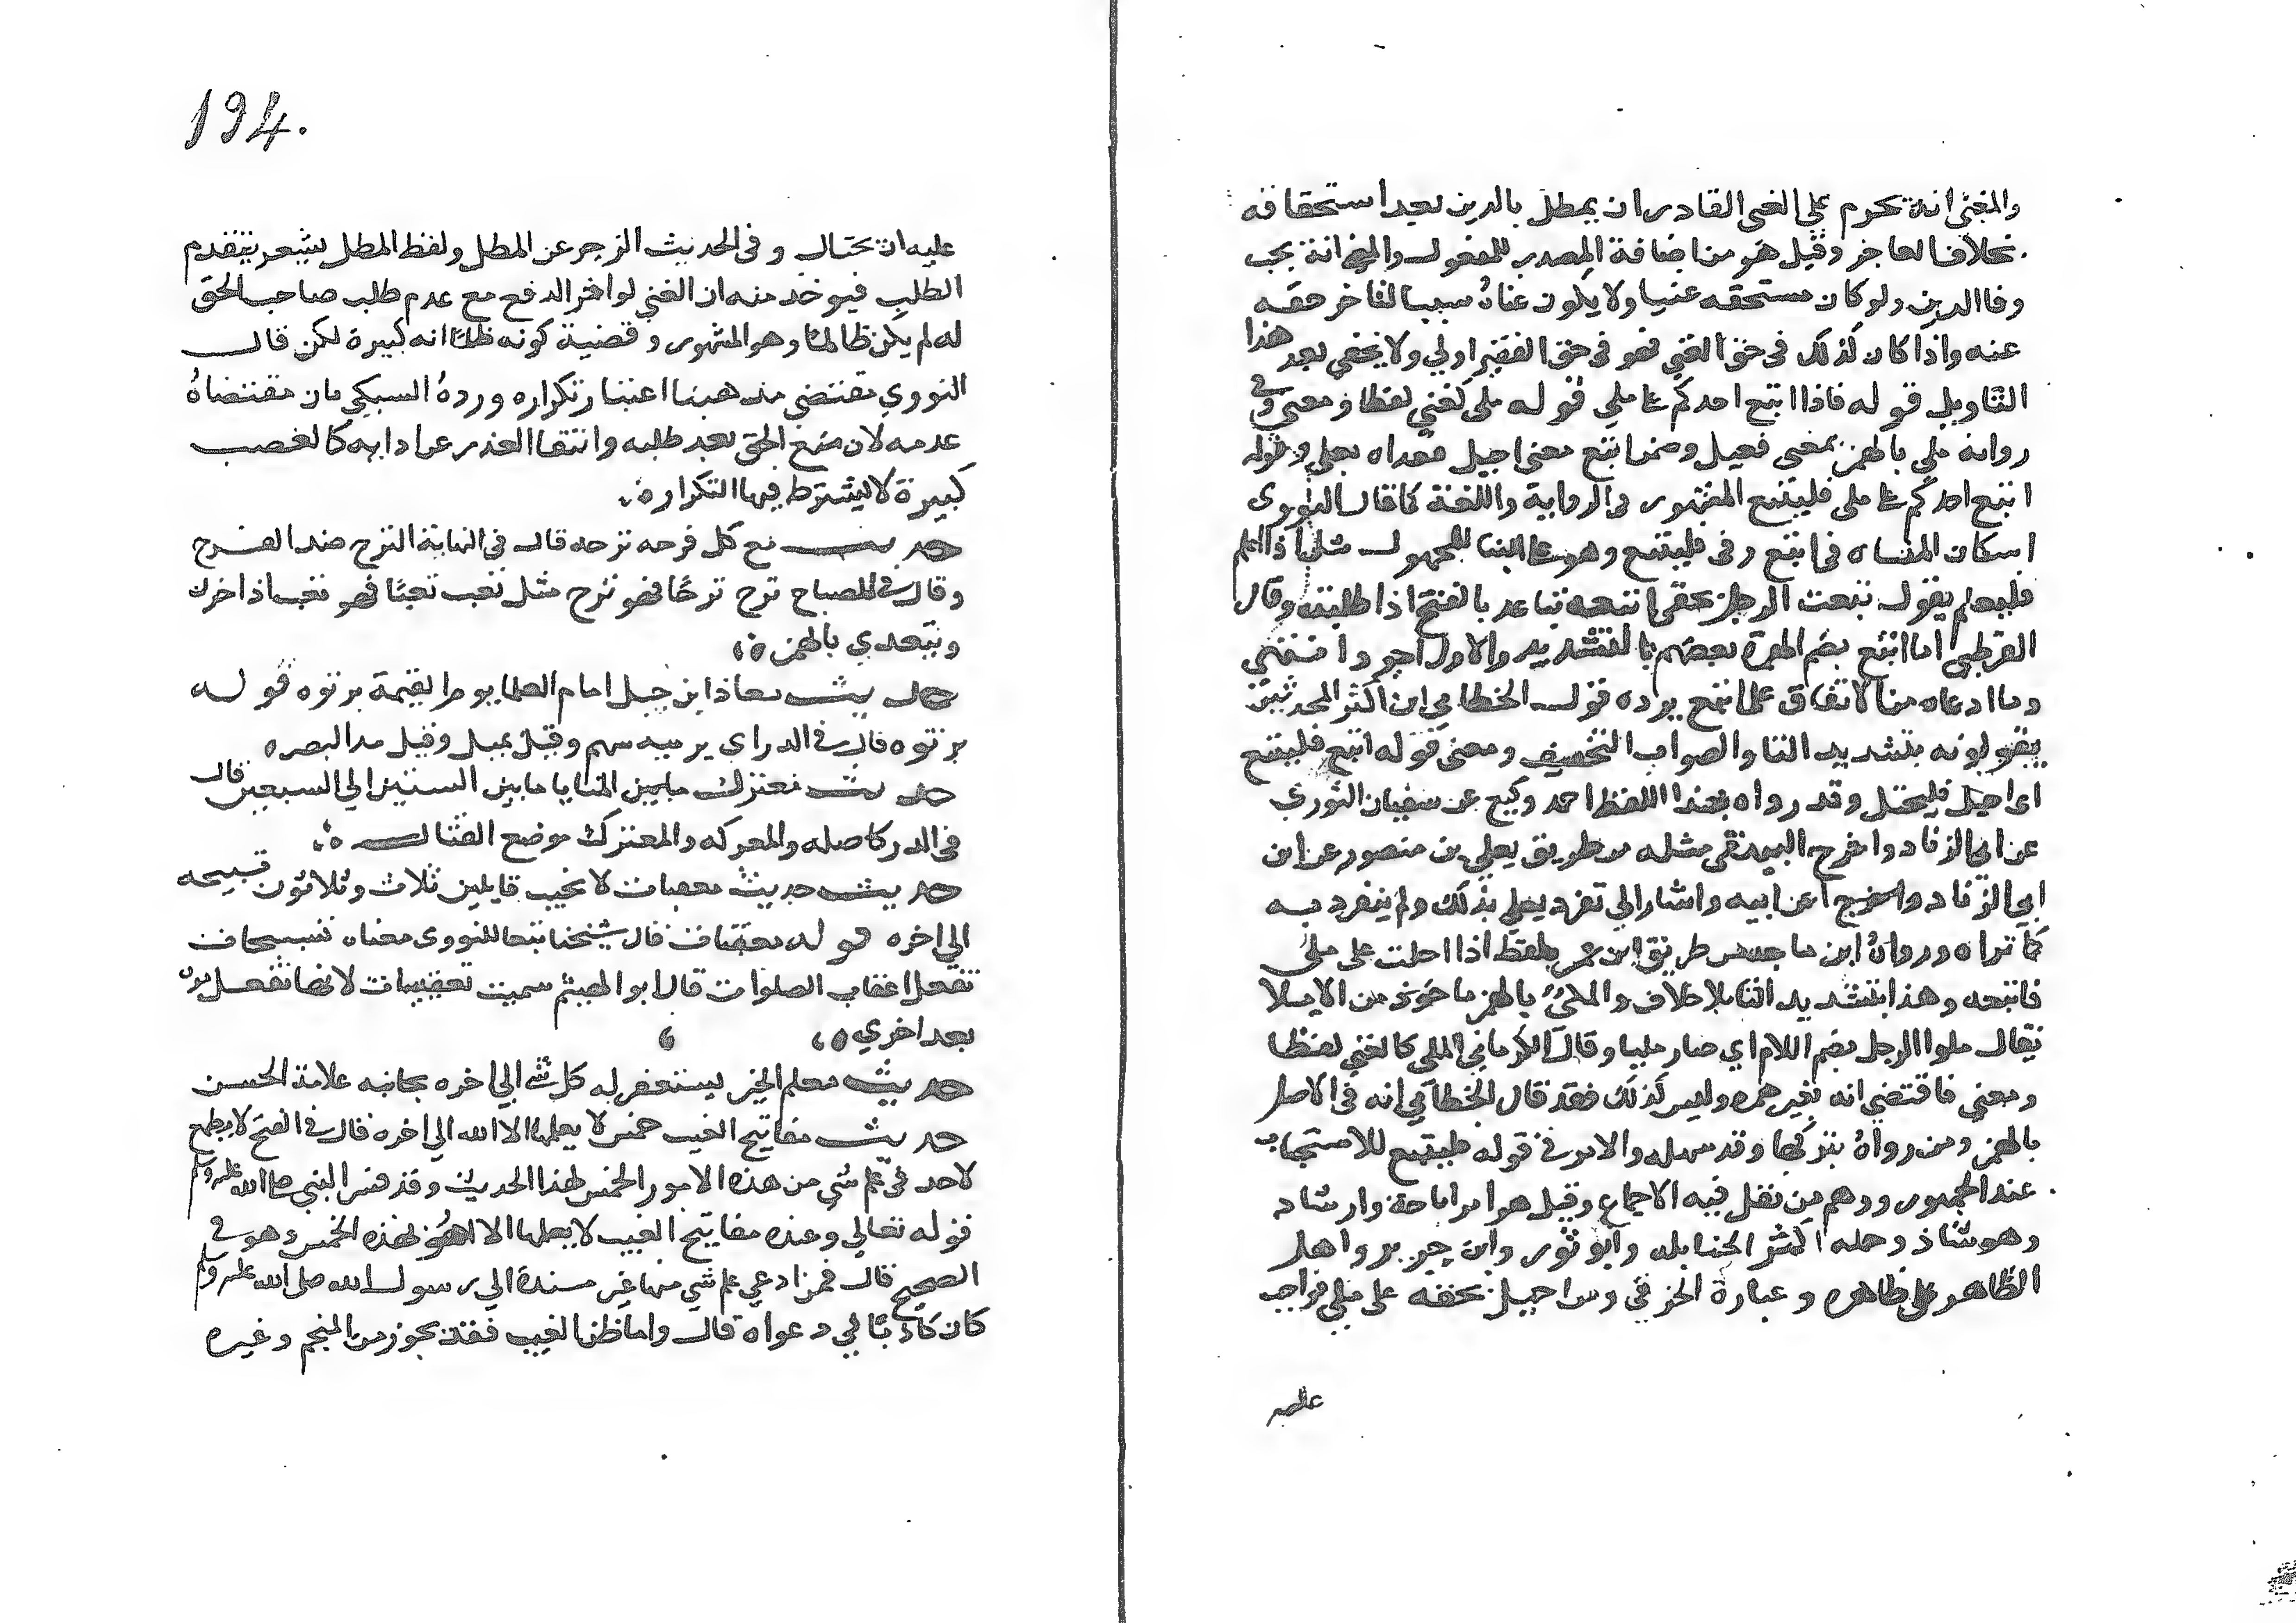 والمعنى انه يحرم على الغنى القادر ان يمطل بالدين بعد استحقاقه
بخلاف العاجز وقيل هو من اضافة المصدر للمفعول والمعنى انه يجب
وفا الدين ولو كان مستحقه غنيا ولا يكون غناه سببا لتاخر حقه
عنه واذا كان كذلك فى حق الغني فهو فى حق الفقير اولي ولا يخفى بعد هذا
التاويل قوله فاذا اتبع احدكم على ملي قوله ملى كغني لفظا ومعنى وفى
رواية ملي بالهمز بمعنى فعيل وضمن اتبع معنى احيل فعداه بعلى وقوله
اتبع احدكم على ملى فليتبع المشهور فى الرواية واللغة كما قال النووى
اسكان المثناه فى اتبع وفى فليتبع وهو على البنا للمجهول مثل اذا اعلم
فليعلم يقول تبعت الرجل بحقى اتبعه تباعه بالفتح اذا طلبته وقال
القرطبي اما اتبع بضم الهمزة بعضهم بالتشديد والاول اجود انتهى
وما ادعاه من الاتفاق على اتبع يرده قول الخطابي ان اكثر المحدثين
يقولونه بتشديد التا والصواب التخفيف ومعنى قوله اتبع فليتبع
اى احيل فليحتل وقد رواه بهذا اللفظ احمد وكيع عن سفيان الثوري
عن ابى الزناد واخرج البيهقى مثله من طريق يعلى بن منصور عن ابن
ابي الزناد عن ابيه واشار الي تفرد يعلي بذلك ولم ينفرد به
كما تراه ورواه ابن ماجه من طريق ابن عمر بلفظ اذا احلت على ملى
فاتبعه وهذا بتشديد التا بلا خلاف والملئ بالهمز ماخوذ من الاملا
يقال ملوا الرجل بضم اللام اي صار مليا وقال الكرماني الملى كالغني لفظا
ومعني فاقتضي انه بغير همزه وليس كذلك فقد قال الخطابي انه فى الاصل
بالهمز ومن رواه بتركها وقد سهله والامر فى قوله فليتبع للاستحباب
عند الجمهور ووهم من نقل فيه الاجماع وقيل هو امر اباحة وارشاد
وهو شاذ وحمله اكثر الحنابله وابو ثور وابن جرير واهل
الظاهر على ظاهره وعبارة الخرقي ومن احيل بحقه على ملي فواجب
عليه
194.
عليه ان يحتال وفى الحديث الزجر عن المطل ولفظ المطل يشعر بتقدم
الطلب فيوخذ منه ان الغني لو اخر الدفع مع عدم طلب صاحب الحق
له لم يكن ظالما وهو المشهور وقضية كونه ظلما انه كبيرة لكن قال
النووي مقتضي مذهبنا اعتبار تكراره ورده السبكي بان مقتضاه
عدمه لان منع الحق بعد طلبه وانتفا العذر عن ادايه كالغصب
كبيرة لا يشترط فيها التكرار ه
حديث مع كل فرحه ترحه قال فى النهاية الترح ضد الفرح
وقال فى المصباح ترح ترحًا فهو ترح مثل تعب تعبًا فهو تعب اذا حزن
ويتعدي بالهمزه
حديث معاذ ابن جبل امام العلما يوم القيمة برتوه قوله
برتوه قال فى الدر اى برميه سهم وقيل بميل وقيل مد البصره
حديث معترك المنايا ما بين الستين الي السبعين قال
فى الدر كاصله والمعركه والمعترك موضع القتال ه
حديث حديث معقبات لا يخيب قايلهن ثلاث وثلاثون تسبيحه
الي اخره قوله معقبات قال شيخنا تبعا للنووى معناه تسبيحات
تفعل اعقاب الصلوات قال ابو الهيثم سميت تعقيبات لانها تفعل مره
بعد اخري ه
حديث معلم الخير يستغفر له كل شى الي اخره بجانبه علامة الحسن
حديث مفاتيح الغيب خمس لا يعلمها الا الله الي اخره قال فى الفتح لا يطمع
لاحد فى علم شي من هذه الامور الخمس لهذا الحديث وقد فسر النبى صلى الله عليه وسلم
قوله تعالي وعنده مفاتيح الغيب لا يعلمها الا هو بهذه الخمس وهو فى
الصحيح قال فمن ادعي علم شي منها غير مسندة الي رسول الله صلى الله عليه وسلم
كان كاذبًا في دعواه قال واما ظن الغيب فقد يجوز من المنجم وغيره